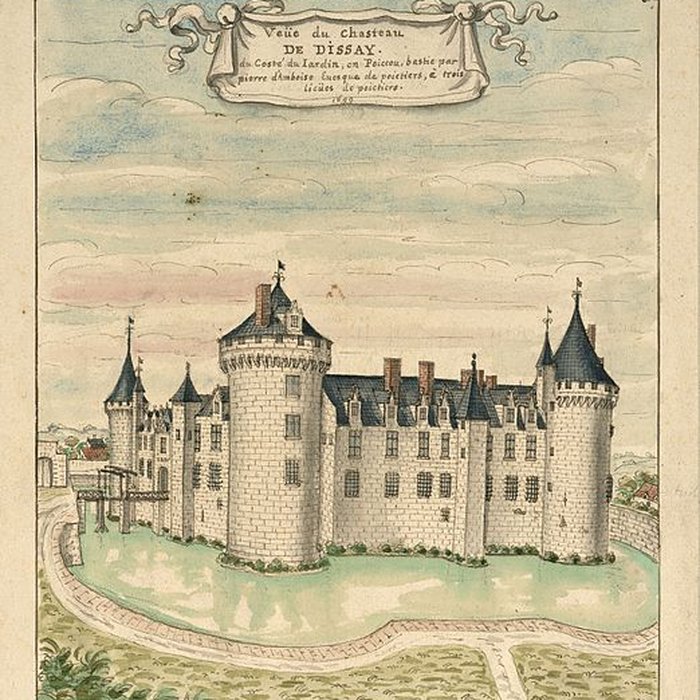 Veüe du Chasteau
DE DISSAY.
du Costé du Iardin, en Poictou, bastie par
pierre d'Amboise Euesque de poictiers, à trois
lieües de poictiers.
1699